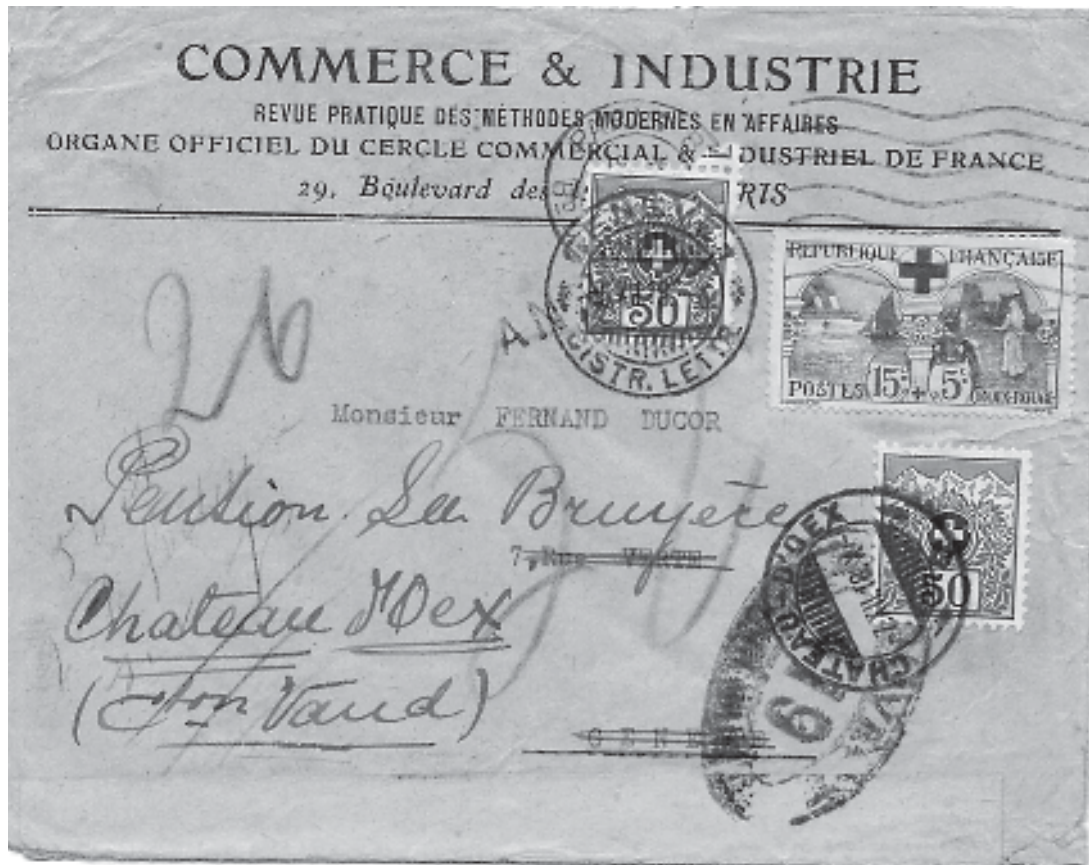 COMMERCE & INDUSTRIE
REVUE PRATIQUE DES MÉTHODES MODERNES EN AFFAIRES
ORGANE OFFICIEL DU CERCLE COMMERCIAL & INDUSTRIEL DE FRANCE
29, Boulevard des
50
REGISTR. LETTR.
REPUBLIQUE FRANÇAISE
POSTES 15c + 5c CROIX-ROUGE
26
Monsieur FERNAND DUCOR
Pension La Bruyère
7, Rue VERTE
Chateau d'Oex
(Cton Vaud)
GENEVE
50
CHATEAU-D'OEX